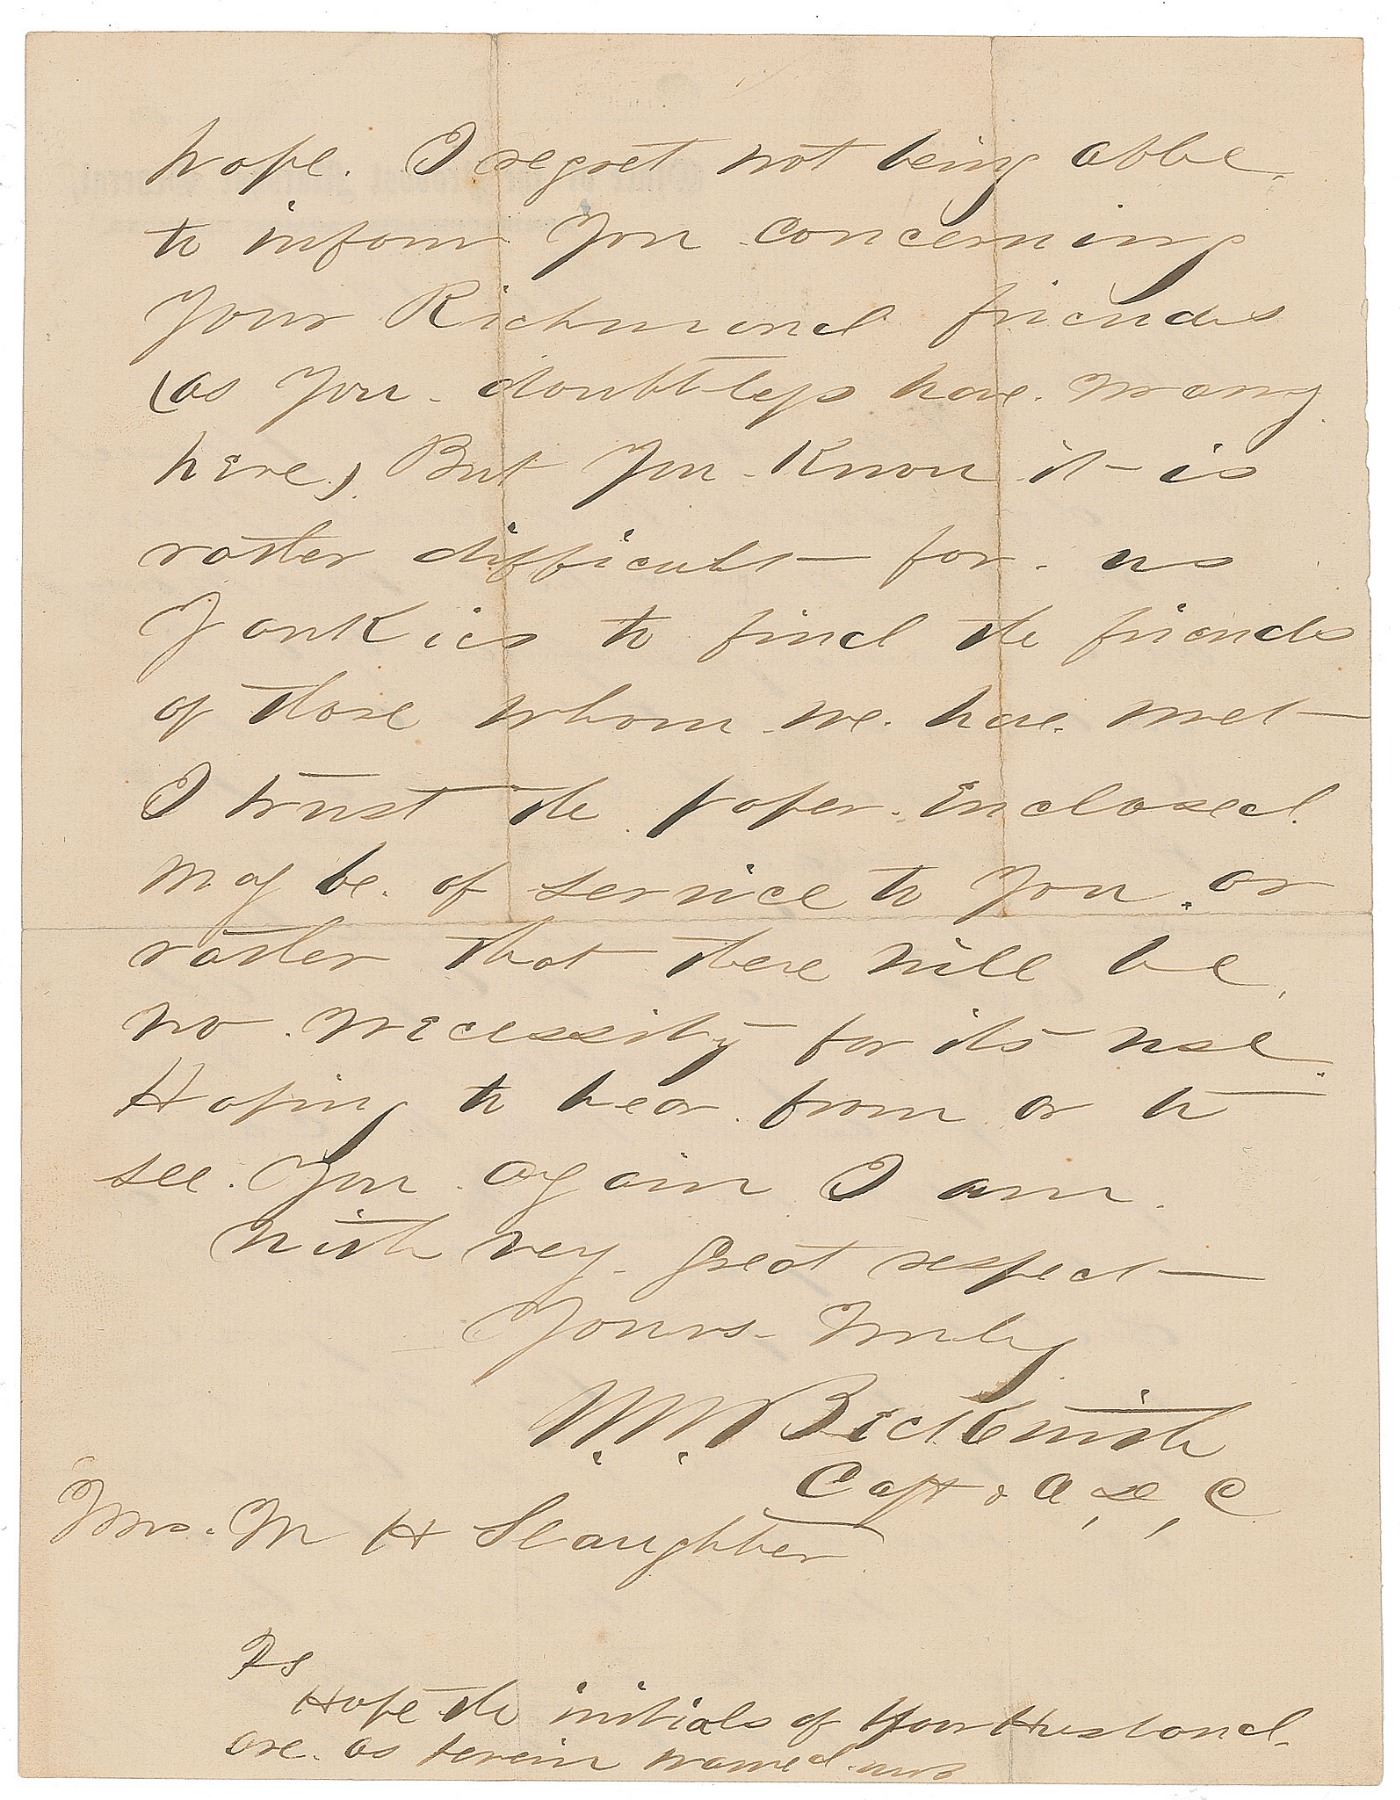 hope. I regret not being able
to inform you concerning
your Richmond friends
(as you doubtless have many
here). But you know it is
rather difficult for us
Yankies to find the friends
of those whom we have met
I trust the paper inclosed
may be of service to you. or
rather that there will be
no necessity for its use.
Hoping to hear from or to
see you again I am
with very great respect
Yours truly
W. W. Beckwith
Capt & A, D, C
Mrs. M H Slaughter
Ps
Hope the initials of your Husband
are as herein named